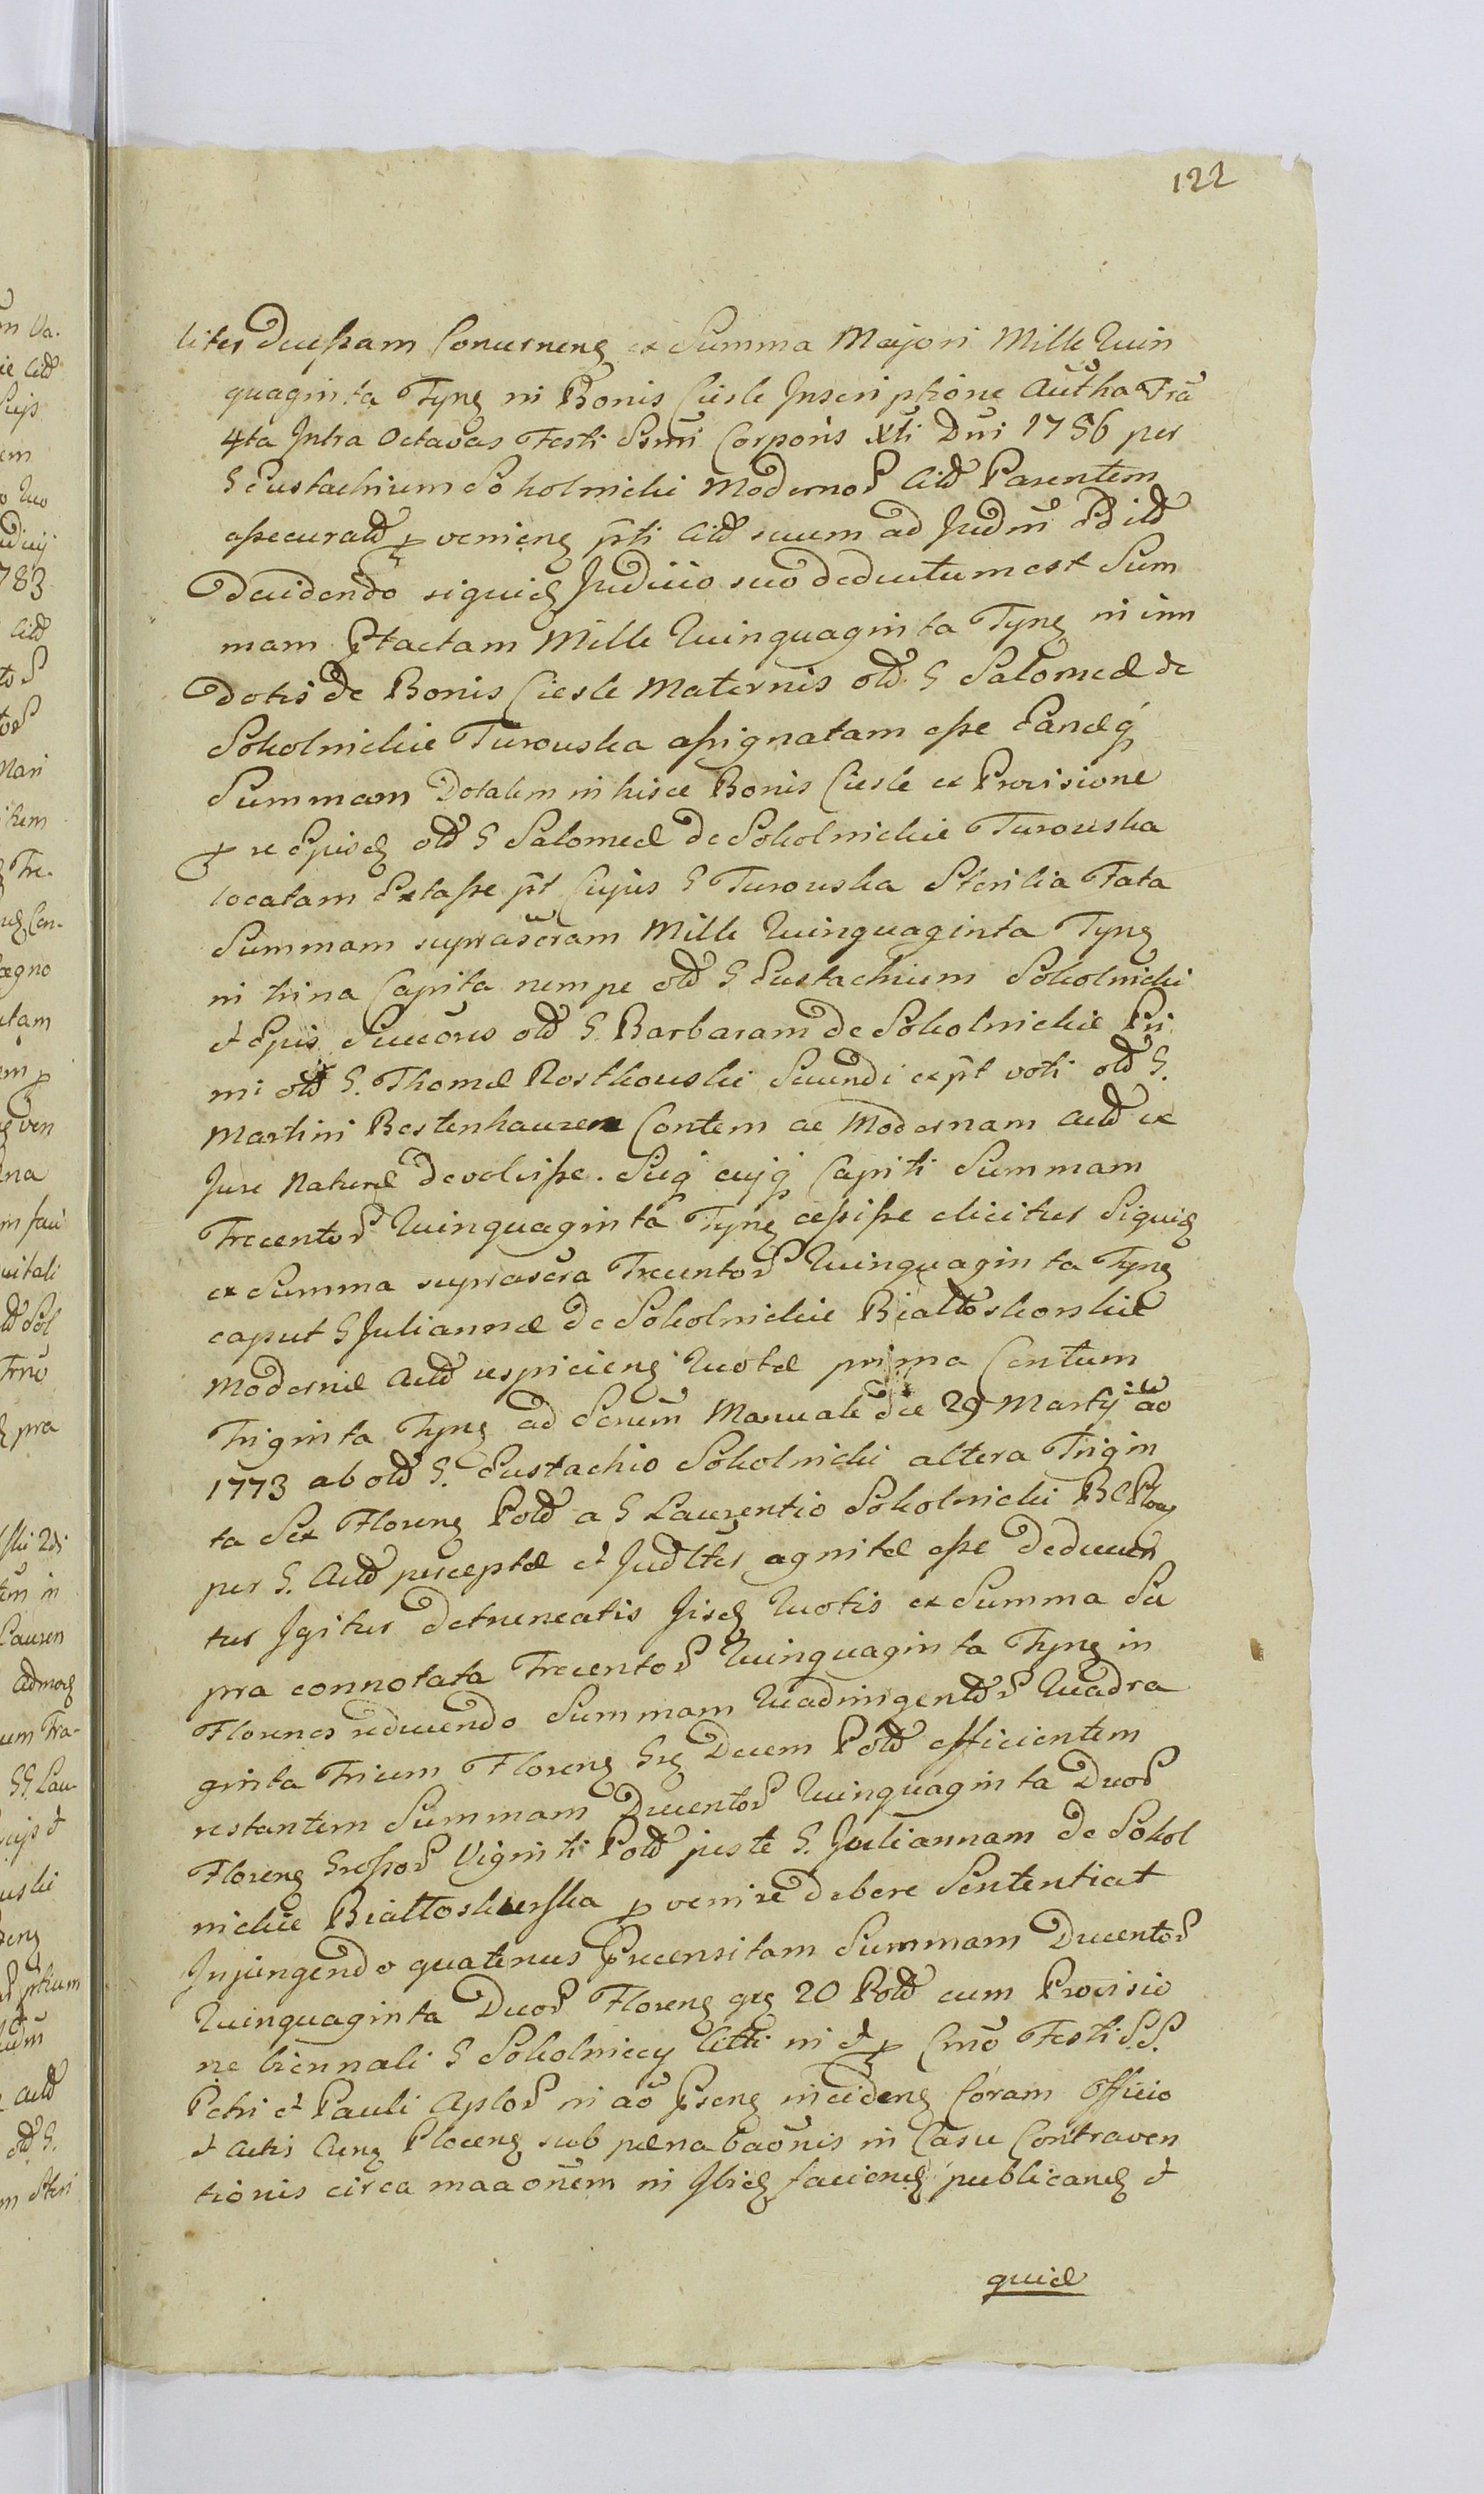 122
liter Ducssam Concerneng ex Summa Majori Mille Quin
quaginta Tyng in Bonis Ciesle Inscriptione Autha Fra
4ta Intra Octavas Festi Ssmi Corporis Xti Dni 1756 per
G Eustachium Sokolnicki Modernor Citd Parentem
assecuratd pveniens pti Citd suum ad Judm
Decidendo siquid Judicio suo deductum est Sum
mam Ptactam Mille Quinquaginta Tyng in im
Dotis de Bonis Ciesle Maternis old G Salomeæ de
Sokolnickie Turouska assignatam esse Eandq
Summam Dotalem in hisce Bonis Ciesle ex Provisione
p re Ejusd old G Salomeæ de Sokolnickie Turouska
locatam Extasse pt Cujus G Turouska Sterilia Fata
Summam suprascram Mille Quinquaginta Tyng
in trina Capita nempe old G Eustachium Sokolnicki
et Ejus Sucores old G. Barbaram de Sokolnickie Pri
mi old G. Thomæ Rostkouski Secundi ex pt voti old G.
Martini Bestenhauzen Contem ac Modernam Actd ex
Jure Naturæ Devolvisse. Sicq cujq Capiti Summam
Trecentor Quinquaginta Tyng cessisse elicitur Siquid
ex Summa suprascra Trecentor Quinquaginta Tyng
caput G Juliannæ de Sokolnickie Białłoskorskie
Modernæ Actd respicieng Quotæ prima Centum
Triginta Tyng ad Scrum Manuale die 29 Martij ao
1773 ab old G. Eustachio Sokolnicki altera Trigin
ta Sex Floreng Pold a G Laurentio Sokolnicki
per G. Actd perceptæ et Judlter agnitæ esse Deducun
tur Igitur Detruncatis Iisd Quotis ex Summa Su
pra connotata Trecentor Quinquaginta Tyng in
Florenos reducendo Summam Quadringentor Quadra
ginta Trium Floreng Grg Decem Pold efficientem
restantem Summam Ducentor Quinquaginta Duor
Floreng Grossor Viginti Pold juste G. Juliannam de Sokol
nickie Białłoskurska pvenire debere Sententiat
Injungendo quatenus Precensitam Summam Ducentor
Quinquaginta Duor Floreng grg 20 Pold cum Provisio
ne biennali G Sokolniccy Citti in et p Cmo Festi S.S.
Petri et Pauli Aplor in ao Pseng incideng Coram Officio
et Actis Cung Ploceng sub pæna baonis in Casu Contraven
tionis circa maaonem in Ibid facieng publicand et
quid